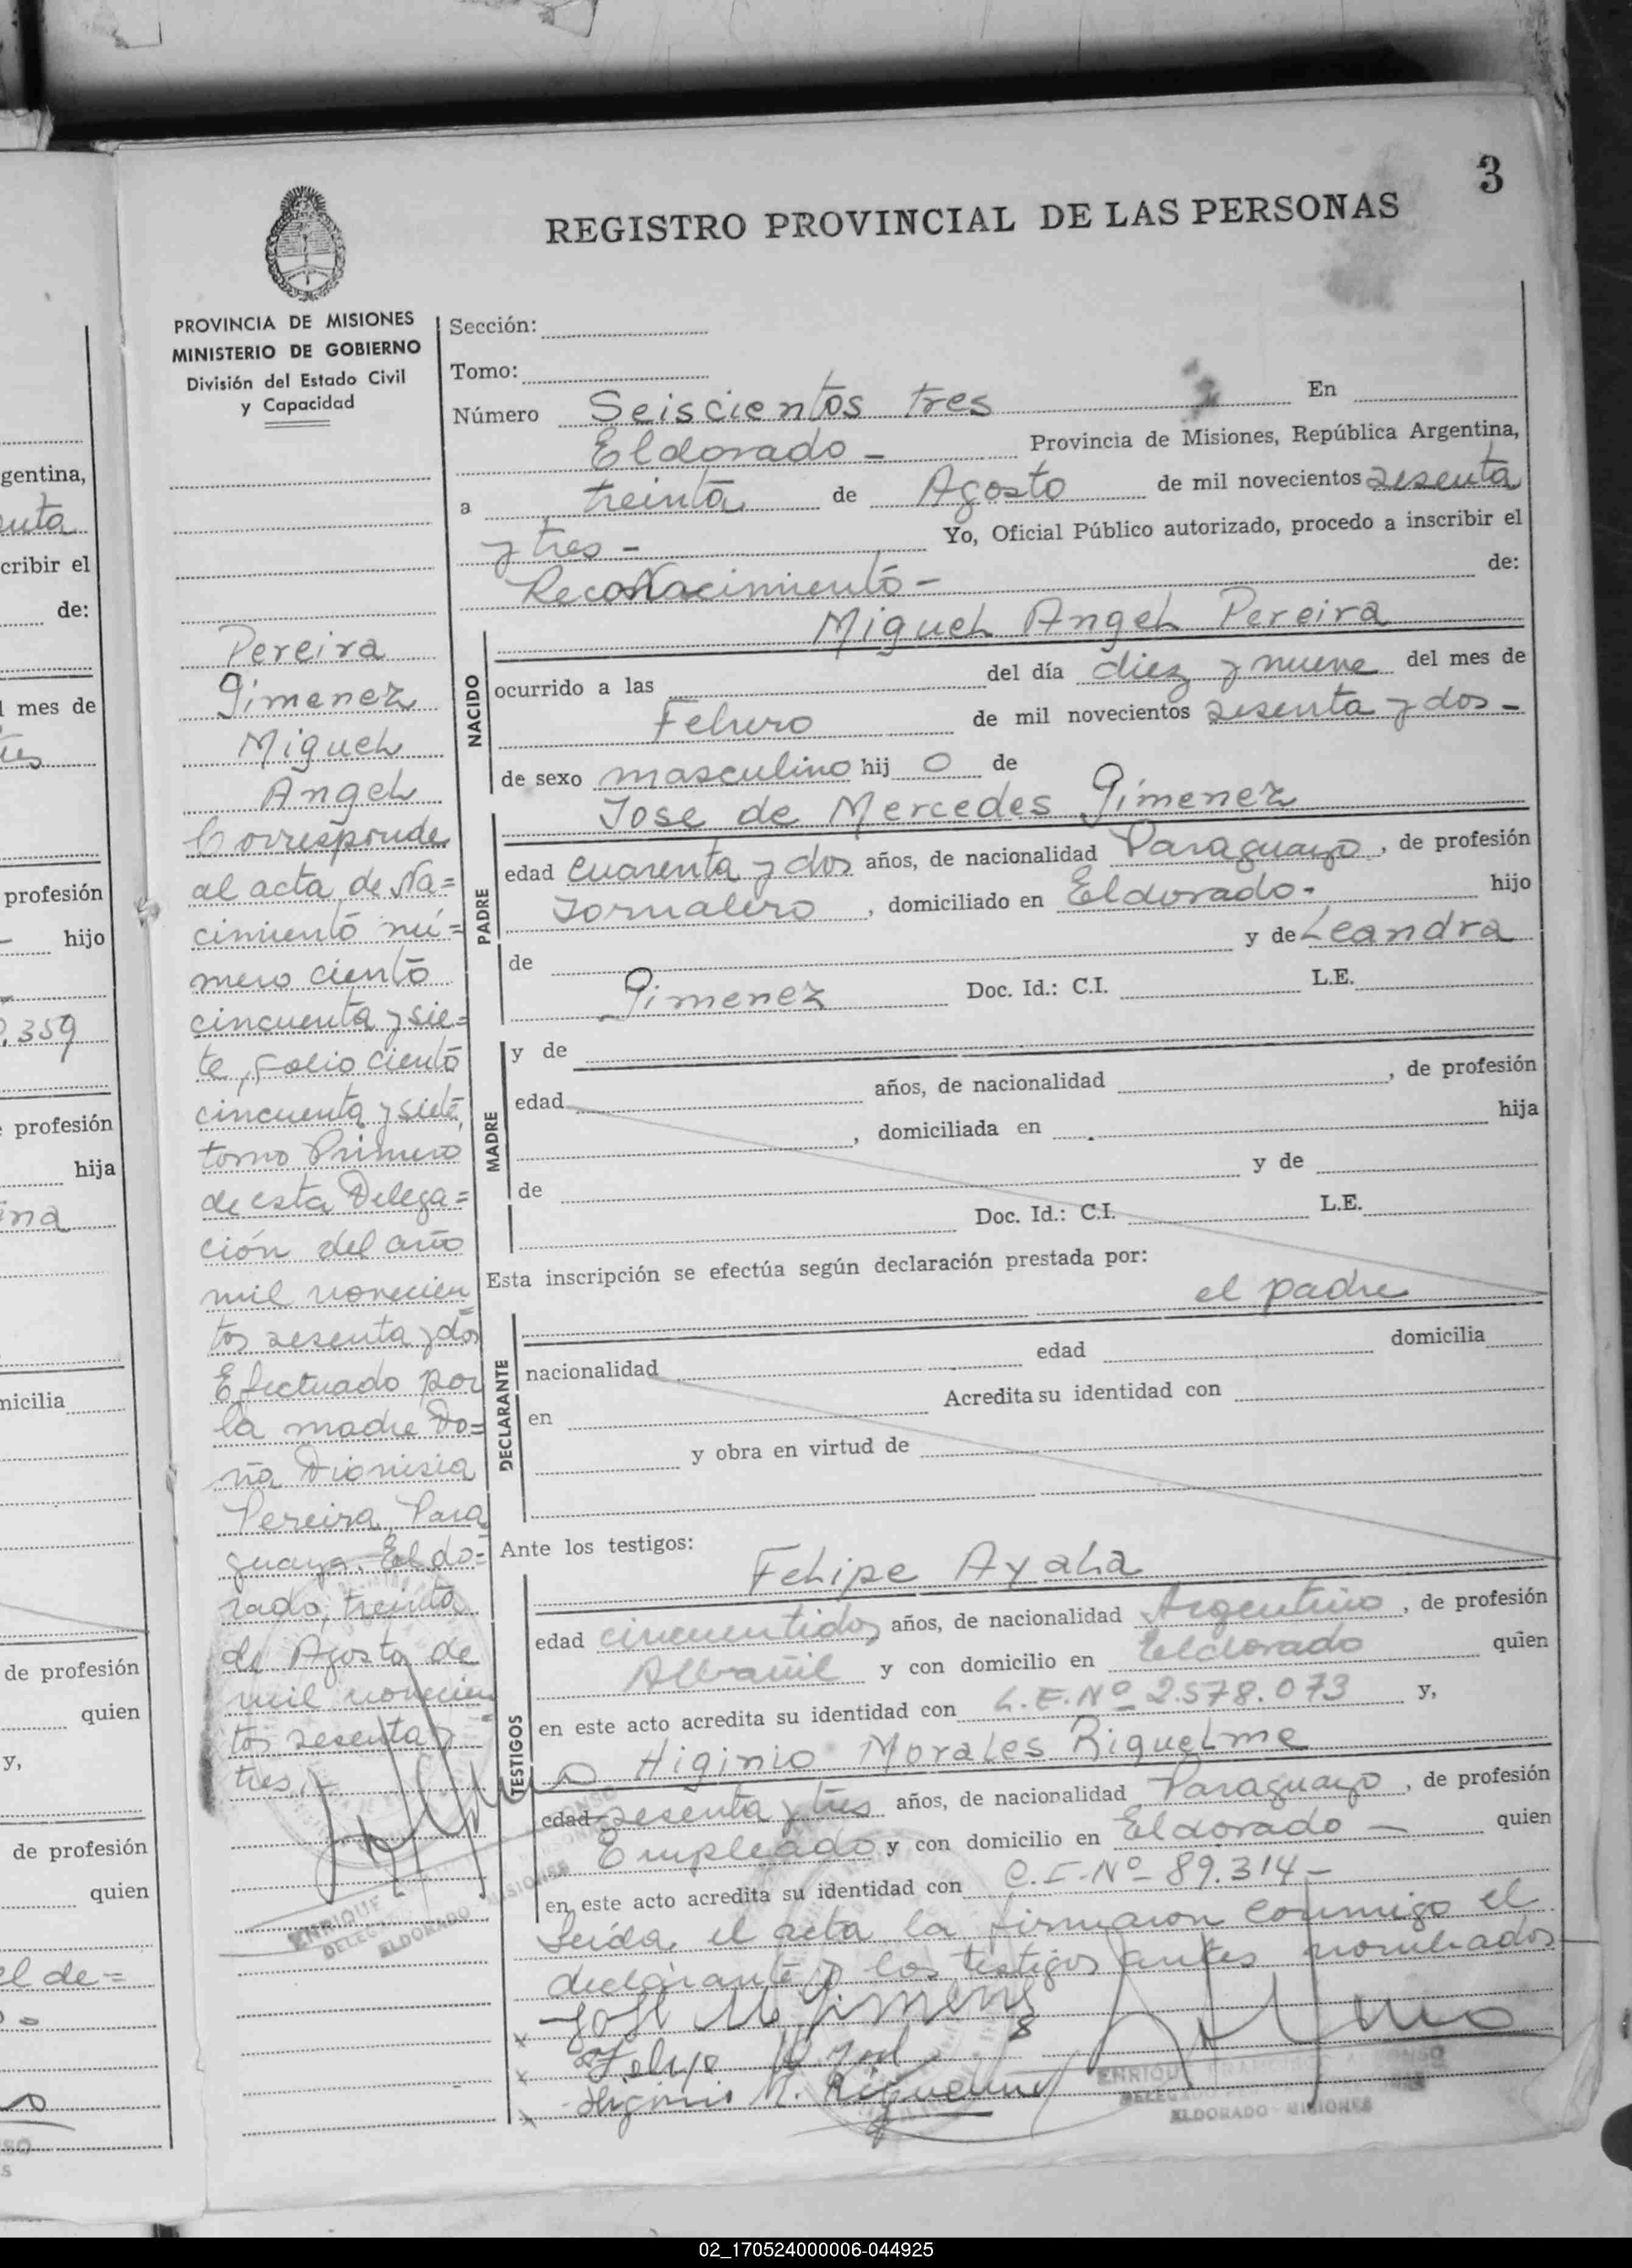 3
REGISTRO PROVINCIAL DE LAS PERSONAS
PROVINCIA DE MISIONES
MINISTERIO DE GOBIERNO
División del Estado Civil
y Capacidad
Pereira
Gimenez
Miguel
Angel
Corresponde
al acta de Na=
cimiento nú=
mero ciento
cincuenta y sie=
te, folio ciento
cincuenta y siete,
tomo Primero
de esta Delega=
ción del año
mil novecien=
tos sesenta y dos
Efectuado por
la madre Do=
ña Dionisia
Pereira, Para
guaya. Eldo=
rado, treinta
de Agosto de
mil novecien=
tos sesenta y
tres.-
ENRIQUE
ELDORADO - MISIONES
Sección:
Tomo:
Número Seiscientos tres En
Eldorado - Provincia de Misiones, República Argentina,
a treinta de Agosto de mil novecientos sesenta
y tres - Yo, Oficial Público autorizado, procedo a inscribir el
Reconacimiento - de:
NACIDO
Miguel Angel Pereira
ocurrido a las del día diez y nueve del mes de
Febrero de mil novecientos sesenta y dos -
de sexo masculino hij o de
PADRE
Jose de Mercedes Gimenez
edad cuarenta y dos años, de nacionalidad Paraguayo, de profesión
Jornalero, domiciliado en Eldorado. hijo
de y de Leandra
Gimenez Doc. Id.: C.I. L.E.
MADRE
y de
edad años, de nacionalidad , de profesión
, domiciliada en hija
de y de
Doc. Id.: C.I. L.E.
Esta inscripción se efectúa según declaración prestada por:
DECLARANTE
el padre
nacionalidad edad domicilia
en Acredita su identidad con
y obra en virtud de
Ante los testigos:
TESTIGOS
Felipe Ayala
edad cincuentidos años, de nacionalidad Argentino, de profesión
Albañil y con domicilio en Eldorado quien
en este acto acredita su identidad con L.E. Nº 2.578.073 y,
Higinio Morales Riquelme
edad sesenta y tres años, de nacionalidad Paraguayo, de profesión
Empleado y con domicilio en Eldorado - quien
en este acto acredita su identidad con C.I. Nº 89.314 -
Leída el acta la firmaron conmigo el
declarante y los testigos antes nombrados
Higinio M. Riquelme
ELDORADO - MISIONES
gentina,
cribir el
de:
mes de
profesión
hijo
.359
profesión
hija
micilia
de profesión
quien
y,
de profesión
quien
el de=
02_170524000006-044925